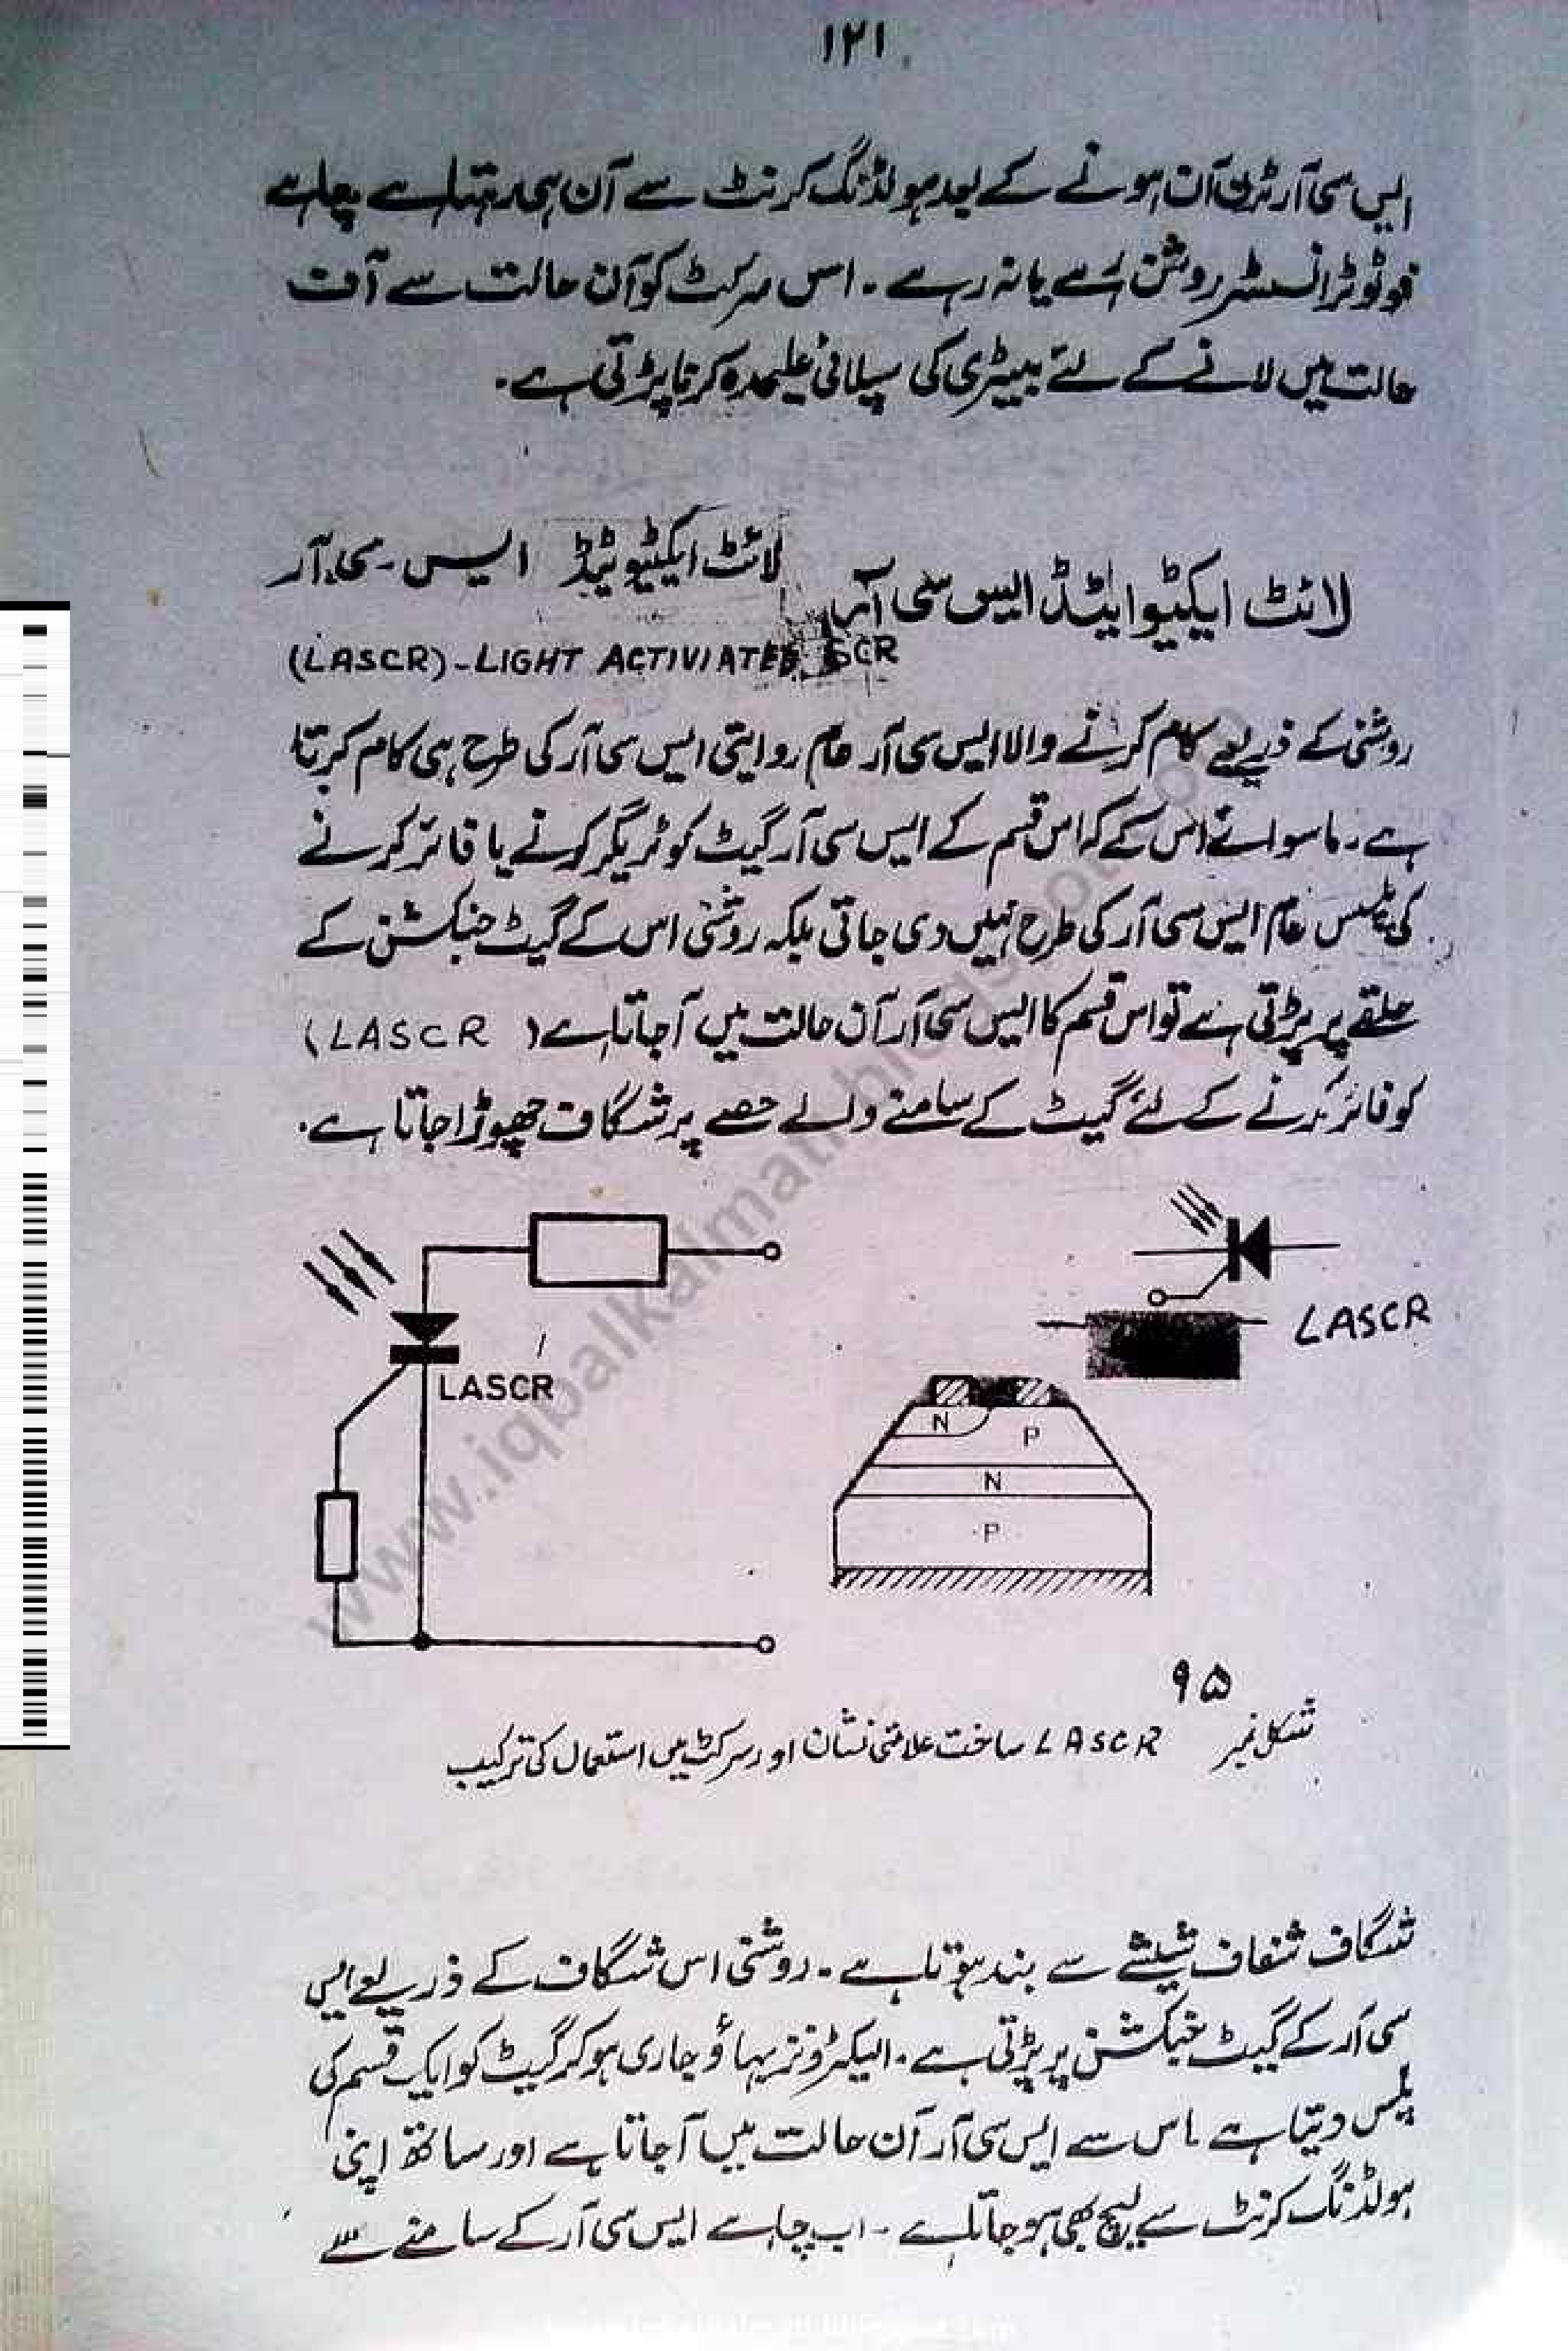 ۱۲۱
ایس سی آر ٹرن آن ہونے کے بعد ہولڈنگ کرنٹ سے آن ہی رہتا ہے چاہے
فوٹو ٹرانسسٹر روشن رہے یا نہ رہے ۔ اس سرکٹ کو آن حالت سے آف
حالت میں لانے کے لئے بیٹری کی سپلائی علیحدہ کرنا پڑتی ہے۔
لائٹ ایکٹیوایٹڈ ایس سی آر
لائٹ ایکٹیویٹڈ ایس۔سی۔آر
(LASCR)-LIGHT ACTIVIATED SCR
روشنی کے ذریعے کام کرنے والا ایس سی آر عام روایتی ایس سی آر کی طرح ہی کام کرتا
ہے۔ ماسوائے اس کے کہ اس قسم کے ایس سی آر گیٹ کو ٹریگر کرنے یا فائر کرنے
کی پلس عام ایس سی آر کی طرح نہیں دی جاتی بلکہ روشنی اس کے گیٹ جنکشن کے
حلقے پر پڑتی ہے تو اس قسم کا ایس سی آر آن حالت میں آجاتا ہے (LASCR)
کو فائر کرنے کے لئے گیٹ کے سامنے والے حصے پر شگاف چھوڑا جاتا ہے۔
LASCR
LASCR
N
P
N
P
شکل نمبر ۹۵ LASCR ساخت علامتی نشان اور سرکٹ میں استعمال کی ترکیب
شگاف شفاف شیشے سے بند ہوتا ہے ۔ روشنی اس شگاف کے ذریعے ایس
سی آر کے گیٹ جنکشن پر پڑتی ہے ۔ الیکٹرونز بہاؤ جاری ہو کر گیٹ کو ایک قسم کی
پلس دیتا ہے ۔ اس سے ایس سی آر آن حالت میں آجاتا ہے اور ساتھ اپنی
ہولڈنگ کرنٹ سے لیچ بھی ہو جاتا ہے ۔ اب چاہے ایس سی آر کے سامنے سے